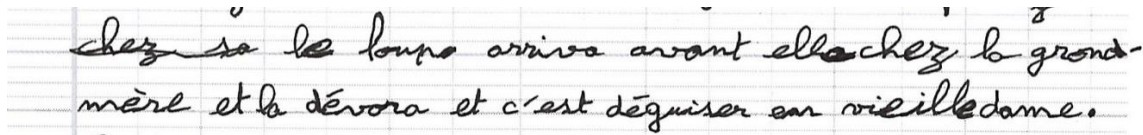 chez sa le loup arriva avant elle chez la grand-
mère et la dévora et c'est déguiser en vieille dame.